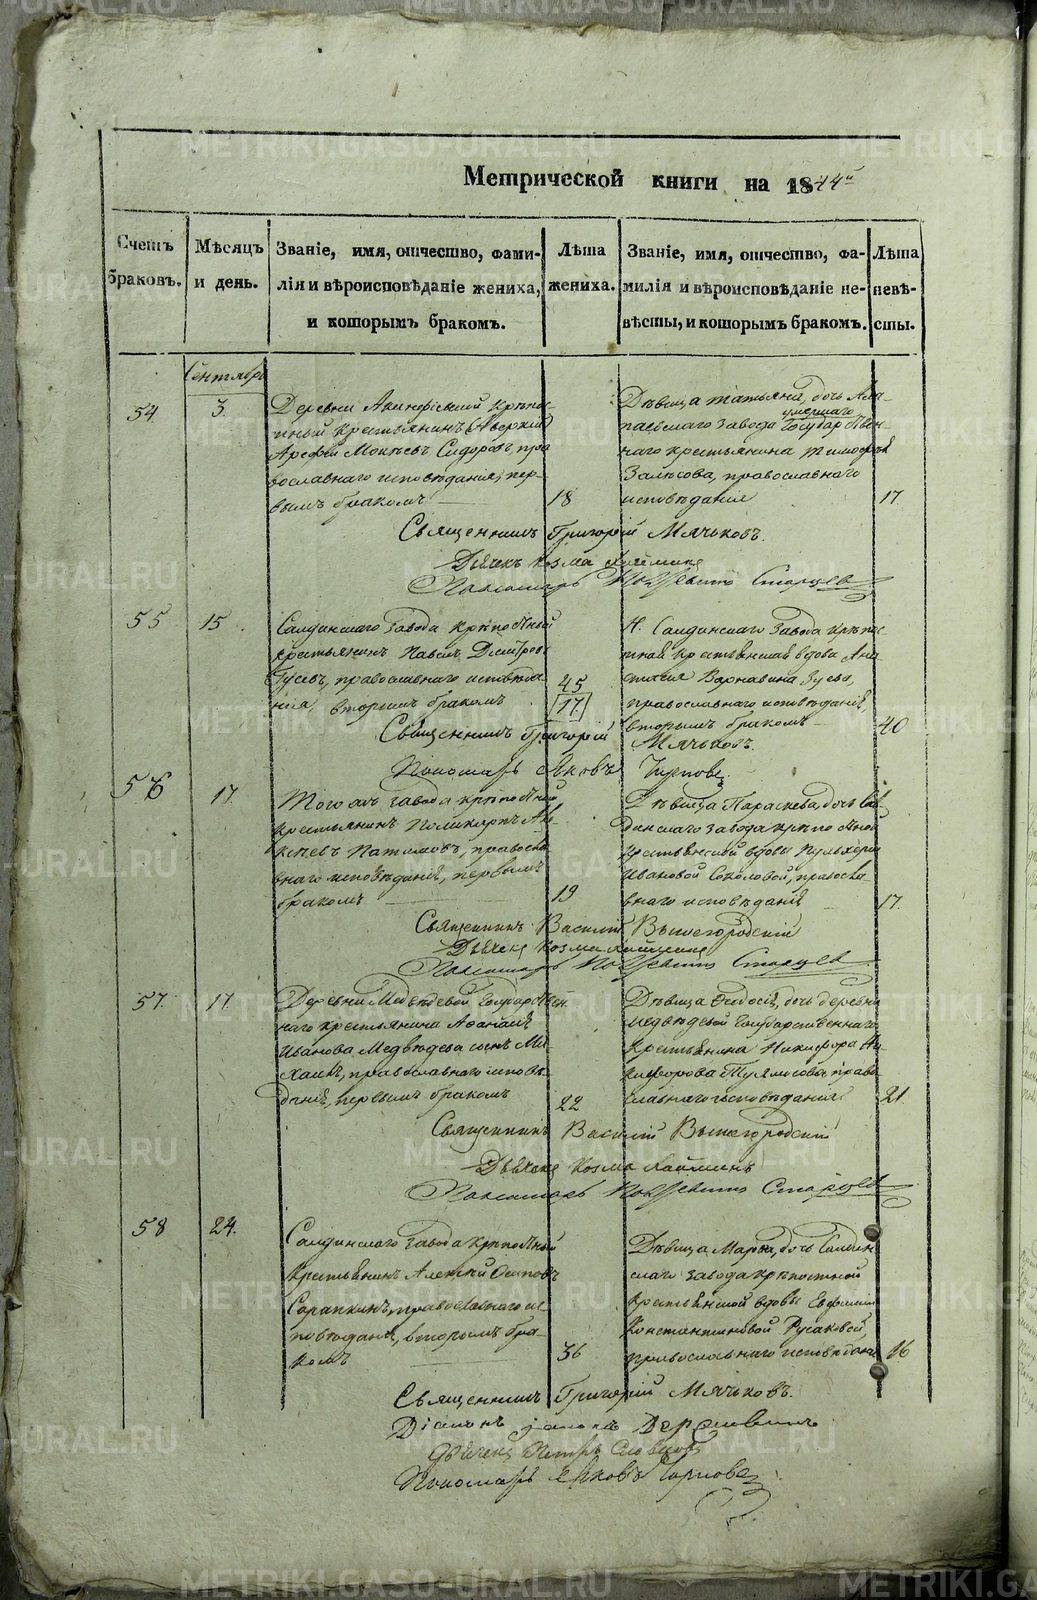 METRIKI.GASO-URAL.RU
Метрической книги на 1844й
Счетъ браковъ.
Мѣсяцъ и день.
Званіе, имя, отчество, фамилія и вѣроисповѣданіе жениха, и которымъ бракомъ.
Лѣта жениха.
Званіе, имя, отчество, фамилія и вѣроисповѣданіе невѣсты, и которымъ бракомъ.
Лѣта невѣсты.
Сентябрь
54
3
Деревни крѣпос-
тный крестьянинъ
Сидоровъ, пра
вославнаго исповѣданія, пер-
вымъ бракомъ
18
Дѣвица Татьяна, дочь Ала-
умершаго
паевскаго завода Государствен-
наго крестьянина Тимофея
православнаго
исповѣданія
17
Священникъ Григорій Мячьковъ.
Дьячекъ Козма
Пономарь Старцев
55
15
Салдинскаго завода крѣпостный
крестьянинъ Павелъ Дмитрьевъ
Гусевъ, православнаго исповѣда
нія, вторымъ бракомъ
45
17
Н. Салдинскаго завода крѣпос
тная крестьянская вдова Ана
стасія Варнавина Зуева,
православнаго исповѣданія,
вторымъ бракомъ
40
Священникъ Григорій Мячьковъ.
Пономарь Яковъ
56
17
Того жъ завода крѣпостный
крестьянинъ Поликарпъ Але
ксѣевъ православ
наго исповѣданія, первымъ
бракомъ
19
Дѣвица Параскева, дочь Сал
динскаго завода крѣпостной
крестьянской вдовы Пульхеріи
Ивановой Соколовой, правосла
внаго исповѣданія
17.
Священникъ Василій Вышегородскій
Дьячекъ Козма
Пономарь Старцев
57.
17.
Деревни Медвѣдевой, Государствен
наго крестьянина Афанасія
Иванова Медвѣдева сынъ Ми
хаилъ, православнаго исповѣ
данія, первымъ бракомъ
22
Дѣвица Феодосія, дочь деревни
Медвѣдевой Государственнаго
крестьянина Никифора Ни
кифорова право
славнаго исповѣданія
21
Священникъ Василій Вышегородскій
Дьячекъ Козма
Пономарь Старцев
58
24.
Салдинскаго завода крѣпостный
крестьянинъ Алексѣй Осиповъ
Сорапкинъ, православнаго ис
повѣданія, вторымъ бра-
комъ
36
Дѣвица Марѳа, дочь Салдин
скаго завода крѣпостной
крестьянской вдовы Евфиміи
Константиновой Русаковой,
православнаго исповѣданія
16
Священникъ Григорій Мячьковъ.
Діаконъ
Дьячекъ Петръ Словцовъ
Пономарь Яковъ